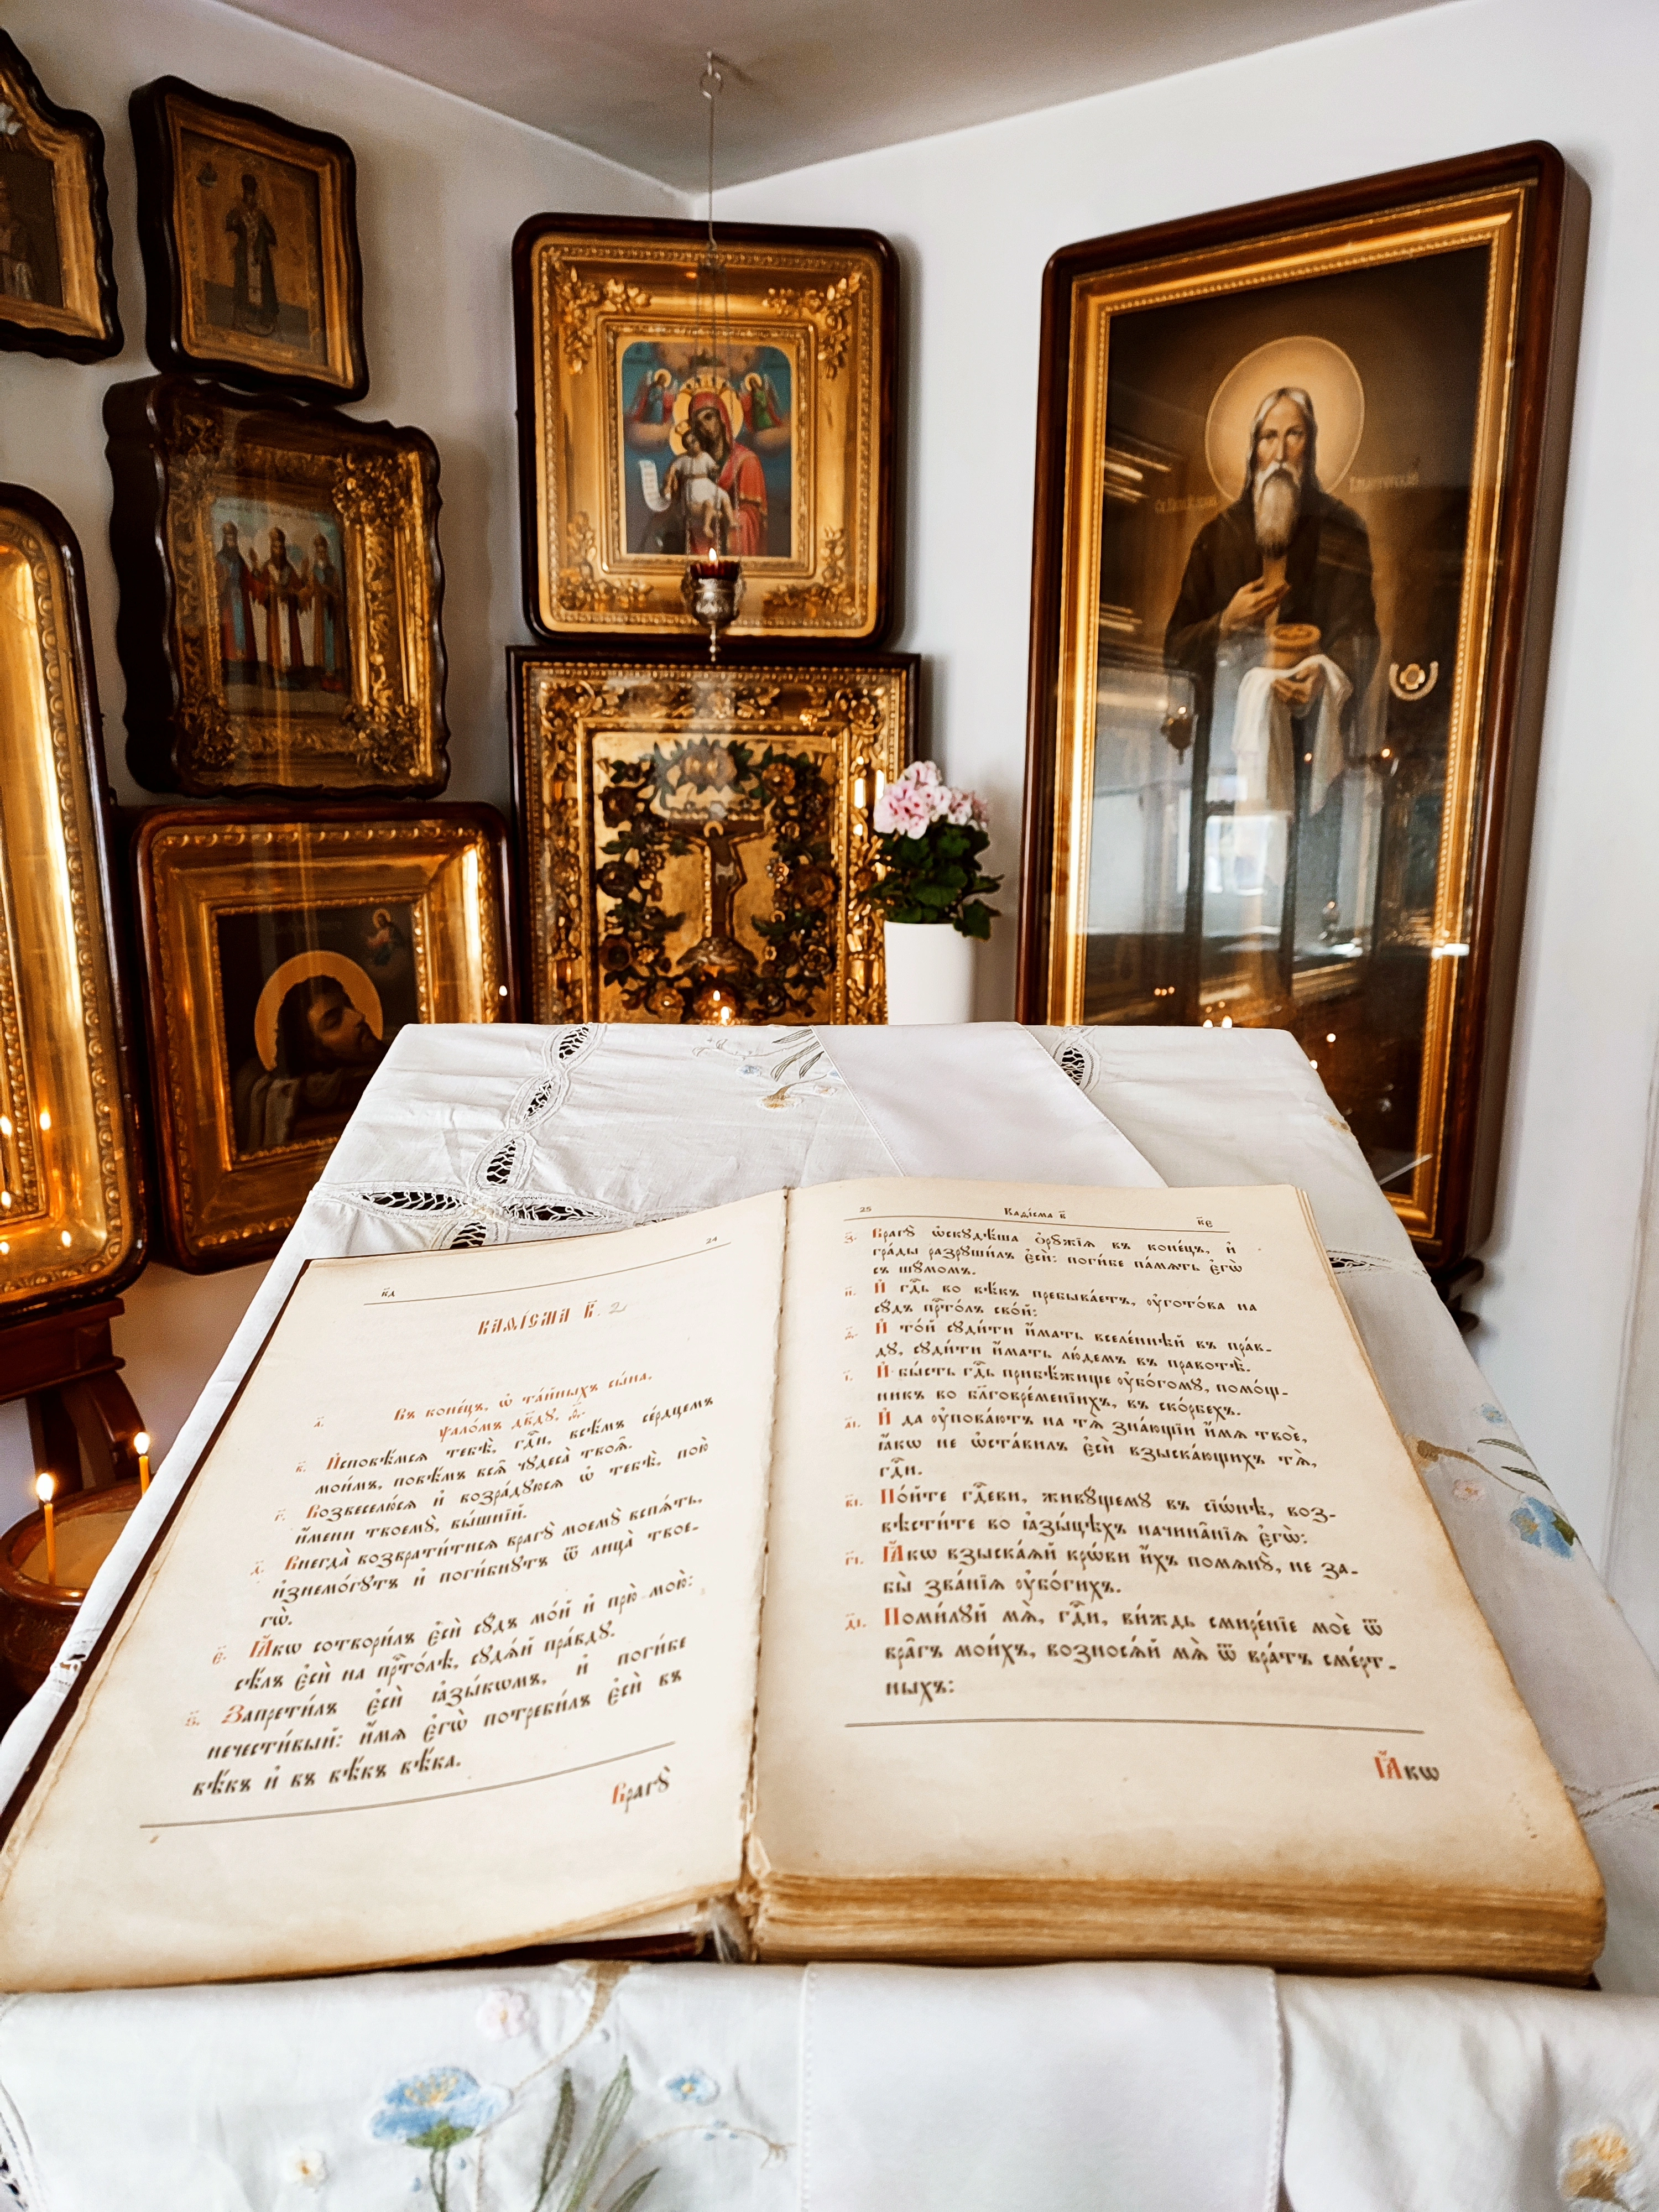 к҃д 24
КАѲІСМА В҃. 2
а҃. Въ коне́цъ, ѡ҆ та́йныхъ сы́на,
ѱало́мъ дв҃ду, ѳ҃.
в҃. И҆сповѣ́мсѧ тебѣ̀, гдⷭ҇и, всѣ́мъ се́рдцемъ
мои́мъ, повѣ́мъ всѧ̑ чудеса̀ твоѧ̑.
г҃. Возвеселю́сѧ и҆ возра́дуюсѧ ѡ҆ тебѣ̀, пою̀
и҆́мени твоемꙋ̀, вы́шнїй.
д҃. Внегда̀ возврати́тисѧ врагꙋ̀ моемꙋ̀ вспѧ́ть,
и҆знемо́гꙋтъ и҆ поги́бнꙋтъ ѿ лица̀ твое-
гѡ̀.
є҃. Ꙗ҆́кѡ сотвори́лъ є҆сѝ сꙋ́дъ мо́й и҆ прю̀ мою̀:
сѣ́лъ є҆сѝ на прⷭ҇то́лѣ, сꙋдѧ́й пра́вдꙋ.
ѕ҃. Запрети́лъ є҆сѝ ꙗ҆зы́кѡмъ, и҆ поги́бе
нечести́вый: и҆́мѧ є҆гѡ̀ потреби́лъ є҆сѝ въ
вѣ́къ и҆ въ вѣ́къ вѣ́ка.
Врагꙋ̀
25 Каѳі́сма в҃ к҃є
з҃. Врагꙋ̀ ѡ҆скꙋдѣ́ша ѻ҆рꙋ́жїѧ въ коне́цъ, и҆
гра́ды разрꙋши́лъ є҆сѝ: поги́бе па́мѧть є҆гѡ̀
съ шꙋ́момъ.
и҃. И҆ гдⷭ҇ь во вѣ́къ пребыва́етъ, ᲂу҆гото́ва на
сꙋ́дъ прⷭ҇то́лъ сво́й:
ѳ҃. И҆ то́й сꙋди́ти и҆́мать вселе́ннѣй въ пра́в-
дꙋ, сꙋди́ти и҆́мать лю́демъ въ правотѣ̀.
і҃. И҆ бы́сть гдⷭ҇ь прибѣ́жище ᲂу҆бо́гомꙋ, помо́щ-
никъ во бл҃говре́менїихъ, въ ско́рбехъ.
а҃і. И҆ да ᲂу҆пова́ютъ на тѧ̀ зна́ющїи и҆́мѧ твоѐ,
ꙗ҆́кѡ не ѡ҆ста́вилъ є҆сѝ взыска́ющихъ тѧ̀,
гдⷭ҇и.
в҃і. По́йте гдⷭ҇еви, живꙋ́щемꙋ въ сїѡ́нѣ, воз-
вѣсти́те во ꙗ҆зы́цѣхъ начина̑нїѧ є҆гѡ̀:
г҃і. Ꙗ҆́кѡ взыска́ѧй крѡ́ви и҆́хъ помѧнꙋ̀, не за-
бы̀ зва́нїѧ ᲂу҆бо́гихъ.
д҃і. Поми́лꙋй мѧ̀, гдⷭ҇и, ви́ждь смире́нїе моѐ ѿ
вра̑гъ мои́хъ, вознося́й мѧ̀ ѿ вра́тъ сме́рт-
ныхъ:
Ꙗ҆́кѡ